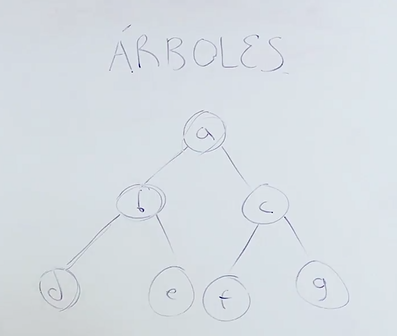 ÁRBOLES
a
b c
d e f g